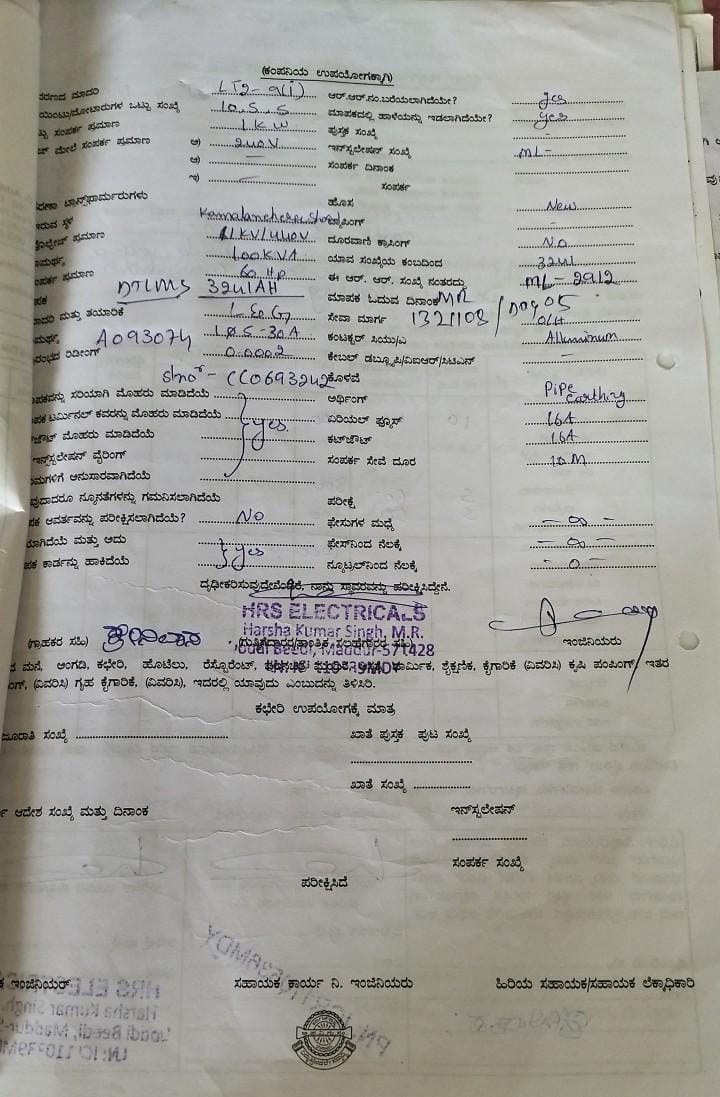 (ಕಂಪನಿಯ ಉಪಯೋಗಕ್ಕಾಗಿ)
ಕರಣದ ಮಾದರಿ LT2-a(i) ಆರ್.ಆರ್.ನಂ.ಬರೆಯಲಾಗಿದೆಯೇ? yes
ಯಿಂಟು/ಮೋಟಾರುಗಳ ಒಟ್ಟು ಸಂಖ್ಯೆ 10, 5, 5 ಮಾಪಕದಲ್ಲಿ ಹಾಳೆಯನ್ನು ಇಡಲಾಗಿದೆಯೇ? yes
ಟ್ಟು ಸಂಪರ್ಕ ಪ್ರಮಾಣ 1 KW ಪುಸ್ತಕ ಸಂಖ್ಯೆ
ಜ್ ಮೇಲೆ ಸಂಪರ್ಕ ಪ್ರಮಾಣ ಅ) 240V ಇನ್ಸ್ಟಲೇಷನ್ ಸಂಖ್ಯೆ ML-
ಆ) — ಸಂಪರ್ಕ ದಿನಾಂಕ
ಇ) — ಸಂಪರ್ಕ
ಟ್ರಾನ್ಸ್‌ಫಾರ್ಮರುಗಳು ಹೊಸ New
ಇರುವ ಸ್ಥಳ ಟ್ಯಾಪಿಂಗ್ -
ವೋಲ್ಟೇಜ್ ಪ್ರಮಾಣ 11KV/440V ದೂರವಾಣಿ ಕ್ರಾಸಿಂಗ್ NO
ಸಾಮರ್ಥ್ಯ 100 KVA ಯಾವ ಸಂಖ್ಯೆಯ ಕಂಬದಿಂದ
ಸಂಪರ್ಕ ಪ್ರಮಾಣ 60 HP ಈ ಆರ್. ಆರ್. ಸಂಖ್ಯೆ ನಂತರದ್ದು ML-2912
ಪಕ DTLMS 3241AH ಮಾಪಕ ಓದುವ ದಿನಾಂಕ MR
ಾದರಿ ಮತ್ತು ತಯಾರಿಕೆ ಸೇವಾ ಮಾರ್ಗ 1321108 / O/H
ಮರ್ಥ್ಯ A093074 5-30A ಕಂಡಕ್ಟರ್ ಸಿಯು/ಎ Alluminum
ರಂಭದ ರಿಡೀಂಗ್ 0.0002 ಕೇಬಲ್ ಡಬ್ಲ್ಯೂಪಿ/ವಿಐಆರ್/ಸಿಟಿಎಸ್ —
Slno- CC0693242 ಕೊಳವೆ
ಪಕವನ್ನು ಸರಿಯಾಗಿ ಮೊಹರು ಮಾಡಿದೆಯೆ ಅರ್ಥಿಂಗ್ Pipe earthing
ಪಕ ಟರ್ಮಿನಲ್ ಕವರನ್ನು ಮೊಹರು ಮಾಡಿದೆಯೆ yes ಏರಿಯಲ್ ಫ್ಯೂಸ್ 16A
ಜೌಟ್ ಮೊಹರು ಮಾಡಿದೆಯೆ ಕಟ್‌ಔಟ್ 16A
ಇನ್ಸ್ಟಲೇಷನ್ ವೈರಿಂಗ್ ಸಂಪರ್ಕ ಸೇವೆ ದೂರ 10M
ಯಮಗಳಿಗೆ ಅನುಸಾರವಾಗಿದೆಯೆ
ವುದಾದರೂ ನ್ಯೂನತೆಗಳನ್ನು ಗಮನಿಸಲಾಗಿದೆಯೆ ಪರೀಕ್ಷೆ
ಪಕ ಆವರ್ತವನ್ನು ಪರೀಕ್ಷಿಸಲಾಗಿದೆಯೆ? NO ಫೇಸುಗಳ ಮಧ್ಯೆ
ಾಗಿದೆಯೆ ಮತ್ತು ಅದು ಫೇಸ್‌ನಿಂದ ನೆಲಕ್ಕೆ
ಪಕ ಕಾರ್ಡನ್ನು ಹಾಕಿದೆಯೆ yes ನ್ಯೂಟ್ರಲ್‌ನಿಂದ ನೆಲಕ್ಕೆ - 0 -
ದೃಢೀಕರಿಸುವುದೇನೆಂದರೆ, ನಾನು ಸ್ಥಾವರವನ್ನು ಪರೀಕ್ಷಿಸಿದ್ದೇನೆ.
HRS ELECTRICALS
Harsha Kumar Singh, M.R.
(ಗ್ರಾಹಕರ ಸಹಿ) ಶ್ರೀನಿವಾಸ ಇಂಜಿನಿಯರು
Joadi Beedi, Maddur-571428
ನ ಮನೆ, ಅಂಗಡಿ, ಕಛೇರಿ, ಹೊಟೆಲು, ರೆಸ್ಟೋರೆಂಟ್, ಧಾರ್ಮಿಕ, ಶೈಕ್ಷಣಿಕ, ಕೈಗಾರಿಕೆ (ವಿವರಿಸಿ) ಕೃಷಿ ಪಂಪಿಂಗ್, ಇತರ
ಂಗ್, (ವಿವರಿಸಿ) ಗೃಹ ಕೈಗಾರಿಕೆ, (ವಿವರಿಸಿ), ಇದರಲ್ಲಿ ಯಾವುದು ಎಂಬುದನ್ನು ತಿಳಿಸಿರಿ.
ಕಛೇರಿ ಉಪಯೋಗಕ್ಕೆ ಮಾತ್ರ
ಜೂರಾತಿ ಸಂಖ್ಯೆ ಖಾತೆ ಪುಸ್ತಕ ಪುಟ ಸಂಖ್ಯೆ
ಖಾತೆ ಸಂಖ್ಯೆ
ರ್ಯ ಆದೇಶ ಸಂಖ್ಯೆ ಮತ್ತು ದಿನಾಂಕ ಇನ್‌ಸ್ಟಲೇಷನ್
ಸಂಪರ್ಕ ಸಂಖ್ಯೆ
ಪರೀಕ್ಷಿಸಿದೆ
ಕ ಇಂಜಿನಿಯರ್ ಸಹಾಯಕ ಕಾರ್ಯ ನಿ. ಇಂಜಿನಿಯರು ಹಿರಿಯ ಸಹಾಯಕ/ಸಹಾಯಕ ಲೆಕ್ಕಾಧಿಕಾರಿ